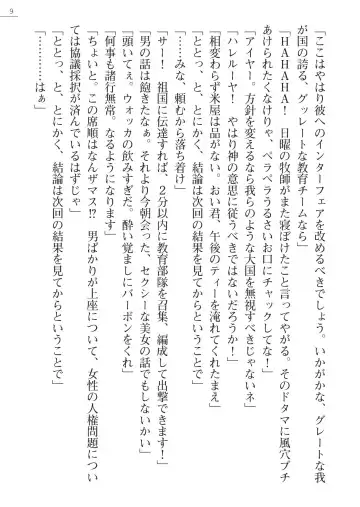 9
「ここはやはり彼へのインターフェアを改めるべきでしょう。いかがかな、グレートな我
が国の誇る、グッレートな教育チームなら」
「HAHAHA！　日曜の牧師がまた寝ぼけたこと言ってやがる。そのドタマに風穴ブチ
あけられたくなけりゃ、ペラペラうるさいお口にチャックしてな！」
「アイヤー。方針を変えるなら我らのような大国を無視すべきじゃないネ」
「ハレルーヤ！　やはり神の意思に従うべきではないだろうか！」
「相変わらず米屋は品がない。おい君、午後のティーを淹れてくれたまえ」
「ととっ、と、とにかく、結論は次回の結果を見てからということで」
「……みな、頼むから落ち着け」
「サー！　祖国に伝達すれば、２分以内に教育部隊を召集、編成して出撃できます！」
「男の話は飽きたなぁ。それより今朝会った、セクシーな美女の話でもしないかい」
「頭いてぇ。ウォッカの飲みすぎだ。酔い覚ましにバーボンをくれ」
「何事も諸行無常。なるようになります」
「ちょいと。この席順はなんザマス!?　男ばかりが上座について、女性の人権問題につい
ては協議採択が済んでいるはずじゃ」
「ととっ、と、とにかく、結論は次回の結果を見てからということで」
「…………はぁ」